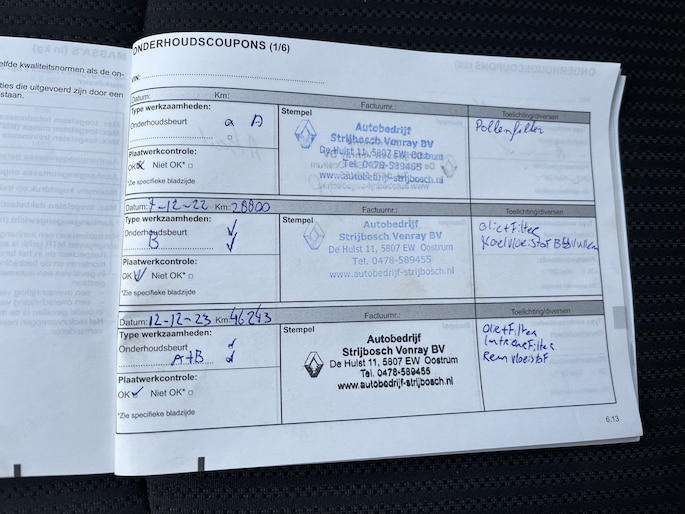 MASSA'S (in kg)
elfde kwaliteitsnormen als de on-
ties die uitgevoerd zijn door een
staan.
ONDERHOUDSCOUPONS (1/6)
VIN:
Datum: Km: Factuurnr.: Toelichting/diversen
Type werkzaamheden:
Onderhoudsbeurt A
Stempel
Autobedrijf
Strijbosch Venray BV
De Hulst 11, 5807 EW Oostrum
Tel. 0478-589455
www.autobedrijf-strijbosch.nl
Pollenfilter
Plaatwerkcontrole:
OK Niet OK*
*Zie specifieke bladzijde
Datum: 7-12-22 Km: 28800 Factuurnr.: Toelichting/diversen
Type werkzaamheden:
Onderhoudsbeurt
B
Stempel
Autobedrijf
Strijbosch Venray BV
De Hulst 11, 5807 EW Oostrum
Tel. 0478-589455
www.autobedrijf-strijbosch.nl
Olie+Filter
Koelvloeistof
Plaatwerkcontrole:
OK Niet OK*
*Zie specifieke bladzijde
Datum: 12-12-23 Km: 46243 Factuurnr.: Toelichting/diversen
Type werkzaamheden:
Onderhoudsbeurt
A+B
Stempel
Autobedrijf
Strijbosch Venray BV
De Hulst 11, 5807 EW Oostrum
Tel. 0478-589455
www.autobedrijf-strijbosch.nl
Olie+Filter
Remvloeistof
Plaatwerkcontrole:
OK Niet OK*
*Zie specifieke bladzijde
6.13